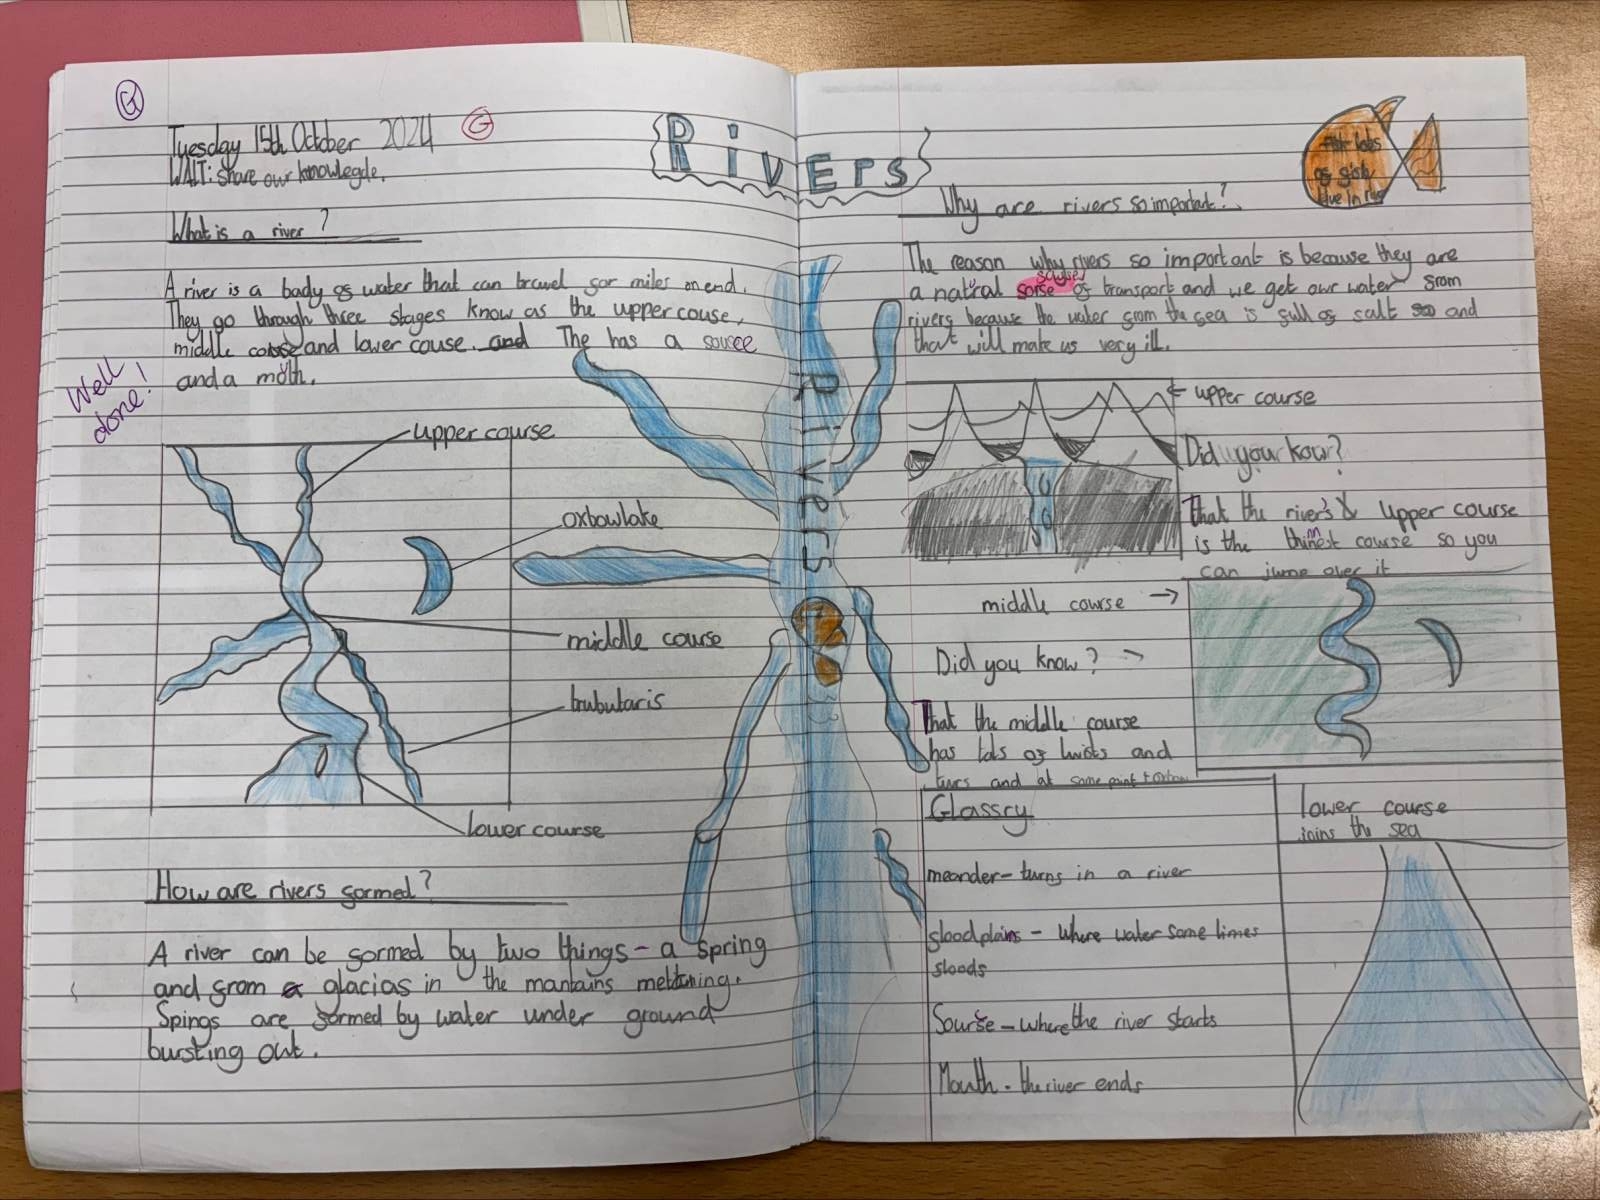 G
Tuesday 15th October 2024 G
WALT: share our knowlegde.
Rivers
What is a river?
A river is a body of water that can travel for miles on end.
They go through three stages know as the upper couse,
middle couse and lower couse. and The has a source
and a moth.
Well
done!
upper course
oxbowlake
middle course
trubutaris
lower course
How are rivers formed?
A river can be formed by two things - a spring
and from a glacias in the mantains meltning.
Spings are formed by water under ground
bursting out.
Rivers
Fish lots
of fish
live in
Why are rivers so important?
The reason why rivers so important is because they are
a natral sorse of transport and we get our water from
rivers because the water from the sea is full of salt so and
that will make us very ill.
← upper course
Did you kow?
That the river's upper course
is the thinnest course so you
can jump over it
middle course →
Did you know? →
That the middle course
has lots of twists and
turs and at some point
Glassry
meander - turns in a river
floodplains - where water some times
floods
Sourse - where the river starts
Mouth - the river ends
lower course
joins the sea